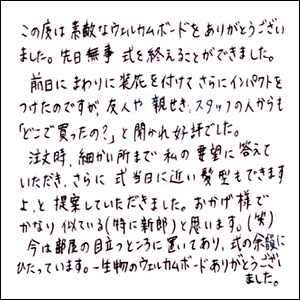 この度は素敵なウェルカムボードをありがとうござい
ました。先日無事 式を終えることができました。
前日にまわりに装花を付けてさらにインパクトを
つけたのですが、友人や 親せき、スタッフの人からも
「どこで買ったの?」と聞かれ好評でした。
注文時、細かい所まで私の要望に答えて
いただき、さらに 式当日に近い髪型もできます
よ、と提案していただきました。おかげ様で
かなり似ている(特に新郎)と思います。(笑)
今は部屋の目立つところに置いてあり、式の余韻に
ひたっています。一生物のウェルカムボードありがとうござい
ました。